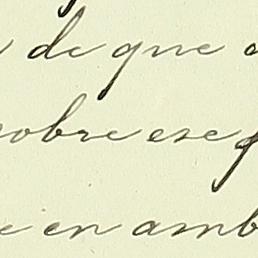 de que
sobre ese
en amb